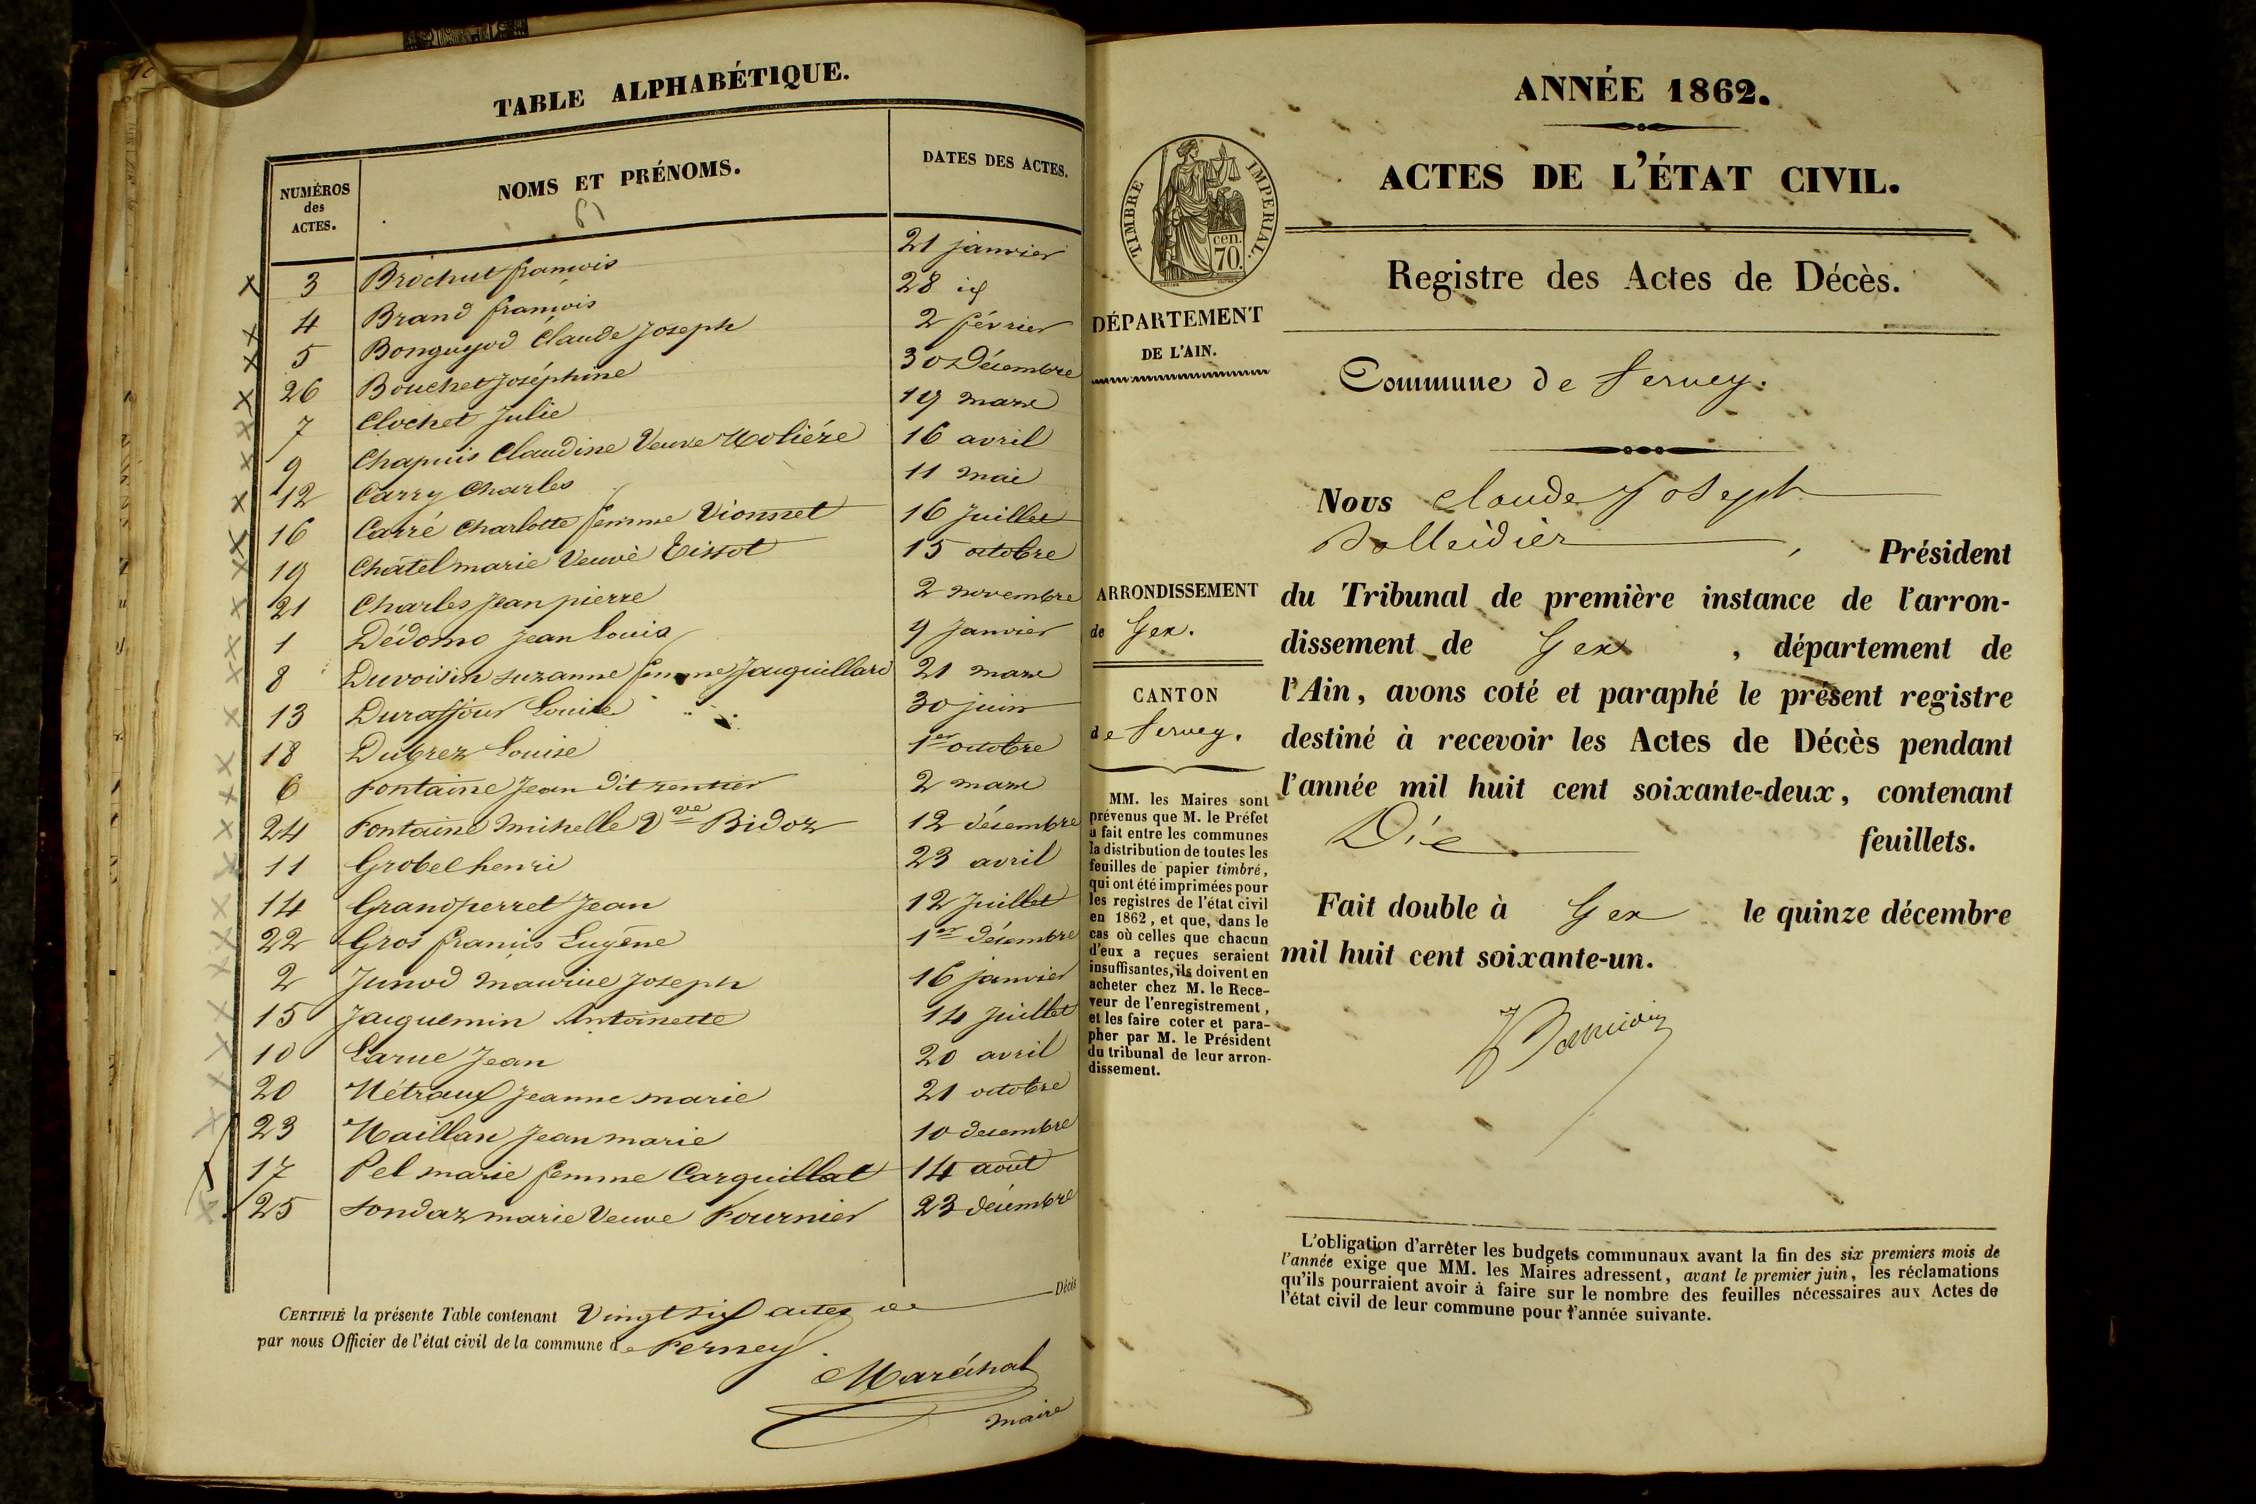 TABLE ALPHABÉTIQUE.
NUMÉROS des ACTES.
NOMS ET PRÉNOMS.
DATES DES ACTES.
61
3 Brochut françois 21 janvier
4 Brand françois 28 id
5 Bonguyod Claude Joseph 2 février
26 Bouchet Joséphine 30 Décembre
7 Clochet Julie 19 mars
9 Chapuis Claudine Veuve Moliére 16 avril
12 Carry Charles 11 mai
16 Carré Charlotte femme Vionnet 16 Juillet
19 Châtel marie Veuve Tissot 15 octobre
21 Charles Jean pierre 2 novembre
1 Dédomo Jean Louis 9 Janvier
8 Duvoisin suzanne femme Jauquillard 21 mars
13 Duraffour Louise 30 juin
18 Dubrez Louise 1er octobre
6 Fontaine Jean dit rentier 2 mars
24 Fontaine Michelle Vve Bidoz 12 décembre
11 Grobel henri 23 avril
14 Grandperret Jean 12 Juillet
22 Gros francis Eugêne 1er décembre
2 Junod Maurice Joseph 16 janvier
15 Jacquemin Antoinette 14 Juillet
10 Larue Jean 20 avril
20 Métraux Jeanne marie 21 octobre
23 Maillan Jean marie 10 decembre
17 Pel marie femme Carquillat 14 août
25 Sondaz marie Veuve Fournier 23 décembre
CERTIFIÉ la présente Table contenant Vingt six actes de Décès
par nous Officier de l'état civil de la commune de Ferney.
Maréchal
maire
ANNÉE 1862.
ACTES DE L'ÉTAT CIVIL.
TIMBRE IMPERIAL.
cen.
70.
Registre des Actes de Décès.
DÉPARTEMENT
DE L'AIN.
Commune de Ferney.
Nous Claude Joseph
, Président
ARRONDISSEMENT
de Gex.
CANTON
de Ferney.
du Tribunal de première instance de l'arron-
dissement de Gex, département de
l'Ain, avons coté et paraphé le présent registre
destiné à recevoir les Actes de Décès pendant
l'année mil huit cent soixante-deux, contenant
Dix feuillets.
Fait double à Gex le quinze décembre
mil huit cent soixante-un.
MM. les Maires sont
prévenus que M. le Préfet
a fait entre les communes
la distribution de toutes les
feuilles de papier timbré,
qui ont été imprimées pour
les registres de l'état civil
en 1862, et que, dans le
cas où celles que chacun
d'eux a reçues seraient
insuffisantes, ils doivent en
acheter chez M. le Rece-
veur de l'enregistrement,
et les faire coter et para-
pher par M. le Président
du tribunal de leur arron-
dissement.
L'obligation d'arrêter les budgets communaux avant la fin des six premiers mois de
l'année exige que MM. les Maires adressent, avant le premier juin, les réclamations
qu'ils pourraient avoir à faire sur le nombre des feuilles nécessaires aux Actes de
l'état civil de leur commune pour l'année suivante.